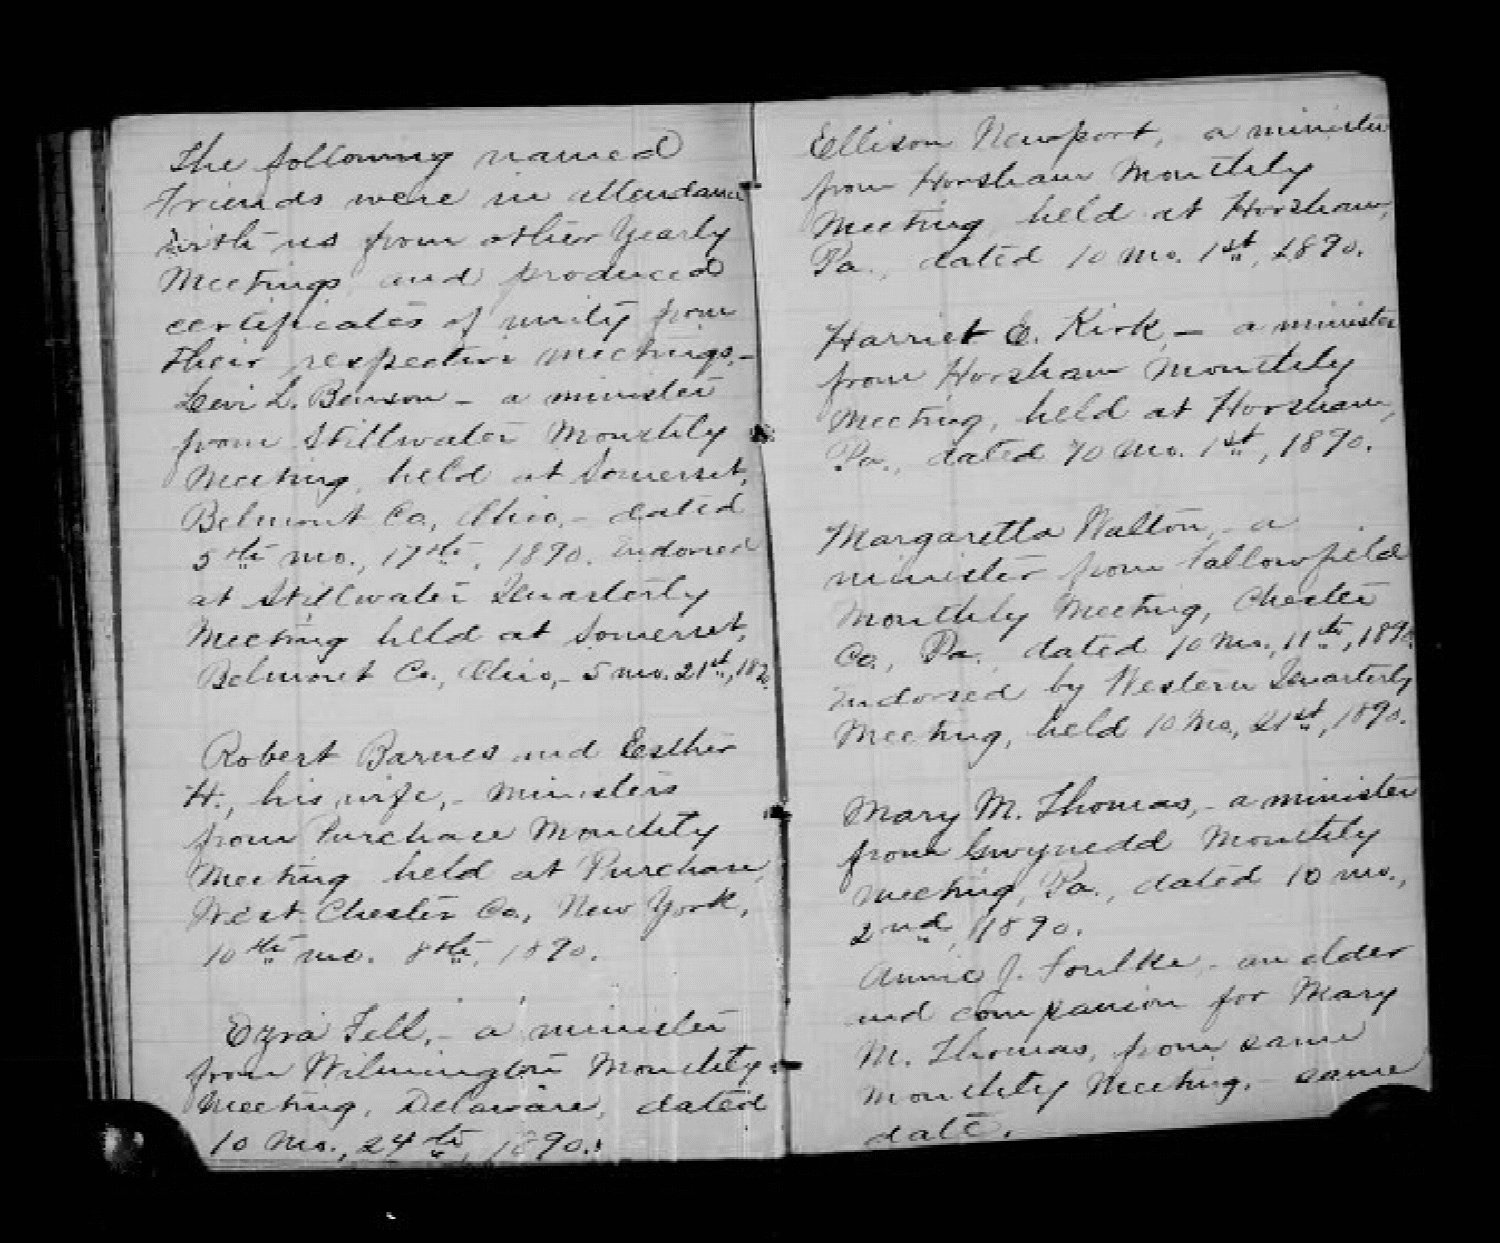 The following named
Friends were in attendance
with us from other Yearly
Meetings and produced
certificates of unity from
their respective meetings,-
Levi L. Benson - a minister
from Stillwater Monthly
Meeting, held at Somerset,
Belmont Co., Ohio,- dated
5th mo., 17th, 1890. Endorsed
at Stillwater Quarterly
Meeting held at Somerset,
Belmont Co., Ohio,- 5 mo. 21st,
Robert Barnes and Esther
H., his wife,- ministers
from Purchase Monthly
Meeting held at Purchase,
West Chester Co., New York,
10th mo. 8th, 1890.
Ezra Fell,- a minister
from Wilmington Monthly
Meeting, Delaware, dated
10 Mo., 24th, 1890.
Ellison Newport, a minister
from Horsham Monthly
Meeting, held at Horsham,
Pa., dated 10 Mo. 1st, 1890.
Harriet E. Kirk,- a minister
from Horsham Monthly
Meeting, held at Horsham,
Pa., dated 10 Mo. 1st, 1890.
Margaretta Walton,- a
minister from Fallowfield
Monthly Meeting, Chester
Co., Pa. dated 10 Mo., 11th, 1890.
Endorsed by Western Quarterly
Meeting, held 10 Mo, 21st, 1890.
Mary M. Thomas,- a minister
from Gwynedd Monthly
Meeting, Pa., dated 10 mo.,
2nd, 1890.
Annie J. Foulke,- an elder
and companion for Mary
M. Thomas, from same
monthly Meeting,- same
date.